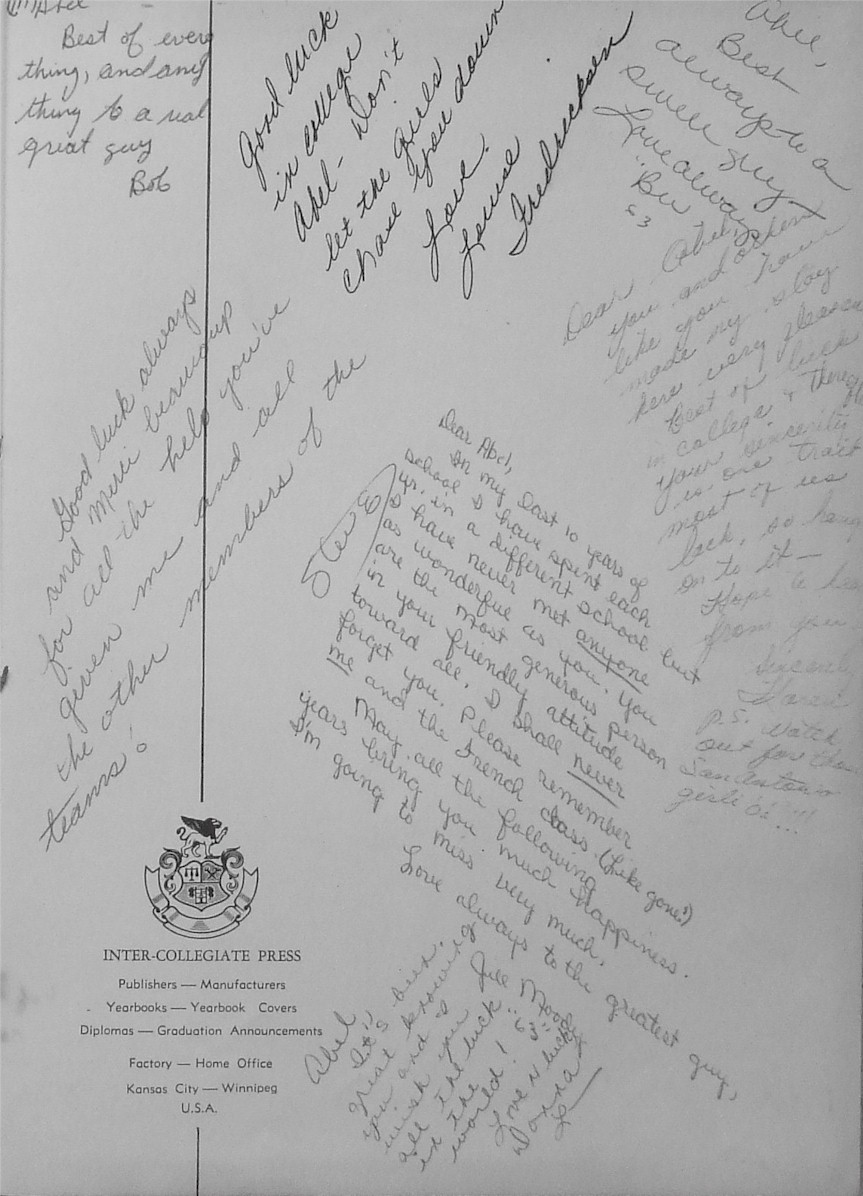 Abel
Best of every
thing, and any
thing to a real
great guy
Bob
Good luck
in college
Abel - Don't
let the girls
chase you down
Love,
Louise
Fredricksen
Abel,
Best
always to a
swell guy
Love always
"Bu
63
Dear Abel,
you and others
like you have
made my stay
here very pleasant
Best of luck
in college &
your sincerity
is one trait
most of us
lack, so hang
on to it —
Hope to hear
from you.
Sincerely
P.S. Watch
out for those
San Antonio
girls
Good luck always
and Merci beaucoup
for all the help you've
given me and all
the other members of the
teams!
Steve B
Dear Abel,
In my last 10 years of
school I have spent each
yr. in a different school but
I have never met anyone
as wonderful as you. You
are the most generous person
in your friendly attitude
toward all. I shall never
forget you. Please remember
me and the French class. (Like gone!)
May all the following
years bring you much happiness.
I'm going to miss very much.
Love always to the greatest guy,
Jill Moody
"63"
Abel,
It's been
great knowing
you and I
wish you
all the luck
in the
world!
Love n luck
Donna
INTER-COLLEGIATE PRESS
Publishers — Manufacturers
Yearbooks — Yearbook Covers
Diplomas — Graduation Announcements
Factory — Home Office
Kansas City — Winnipeg
U.S.A.